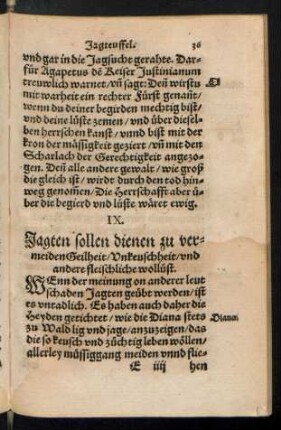 Jagteuffel. 36
vnd gar in die Jagsucht gerahte. Dar-
für Agapetus dē Keiser Justinianum
treuwlich warnet/ vn̄ sagt: Den̄ wirstu
mit warheit ein rechter Fürst genant/
wenn du deiner begirden mechtig bist/
vnd deine lüste zemen/ vnd über diesel-
ben herrschen kanst/ vnnd bist mit der
kron der mässigkeit geziert/ vn̄ mit den
Scharlach der Gerechtigkeit angezo-
gen. Den̄ alle andere gewalt/ wie groß
die gleich ist/ wirdt durch den tod hin-
weg genom̄en/ Die Herrschafft aber ü-
ber die begierd vnd lüste wäret ewig.
IX.
Jagten sollen dienen zu ver-
meiden Geilheit/ Vnkeuschheit/ vnd
andere fleischliche wollüst.
WEnn der meinung on anderer leut
schaden Jagten geübt werden/ ist
es vnradlich. Es haben auch daher die
Heyden getichtet/ wie die Diana stets Diana.
zu Wald lig vnd jage/ anzuzeigen/ das
die so keusch vnd züchtig leben wöllen/
allerley müssiggang meiden vnnd flie-
E iiij hen